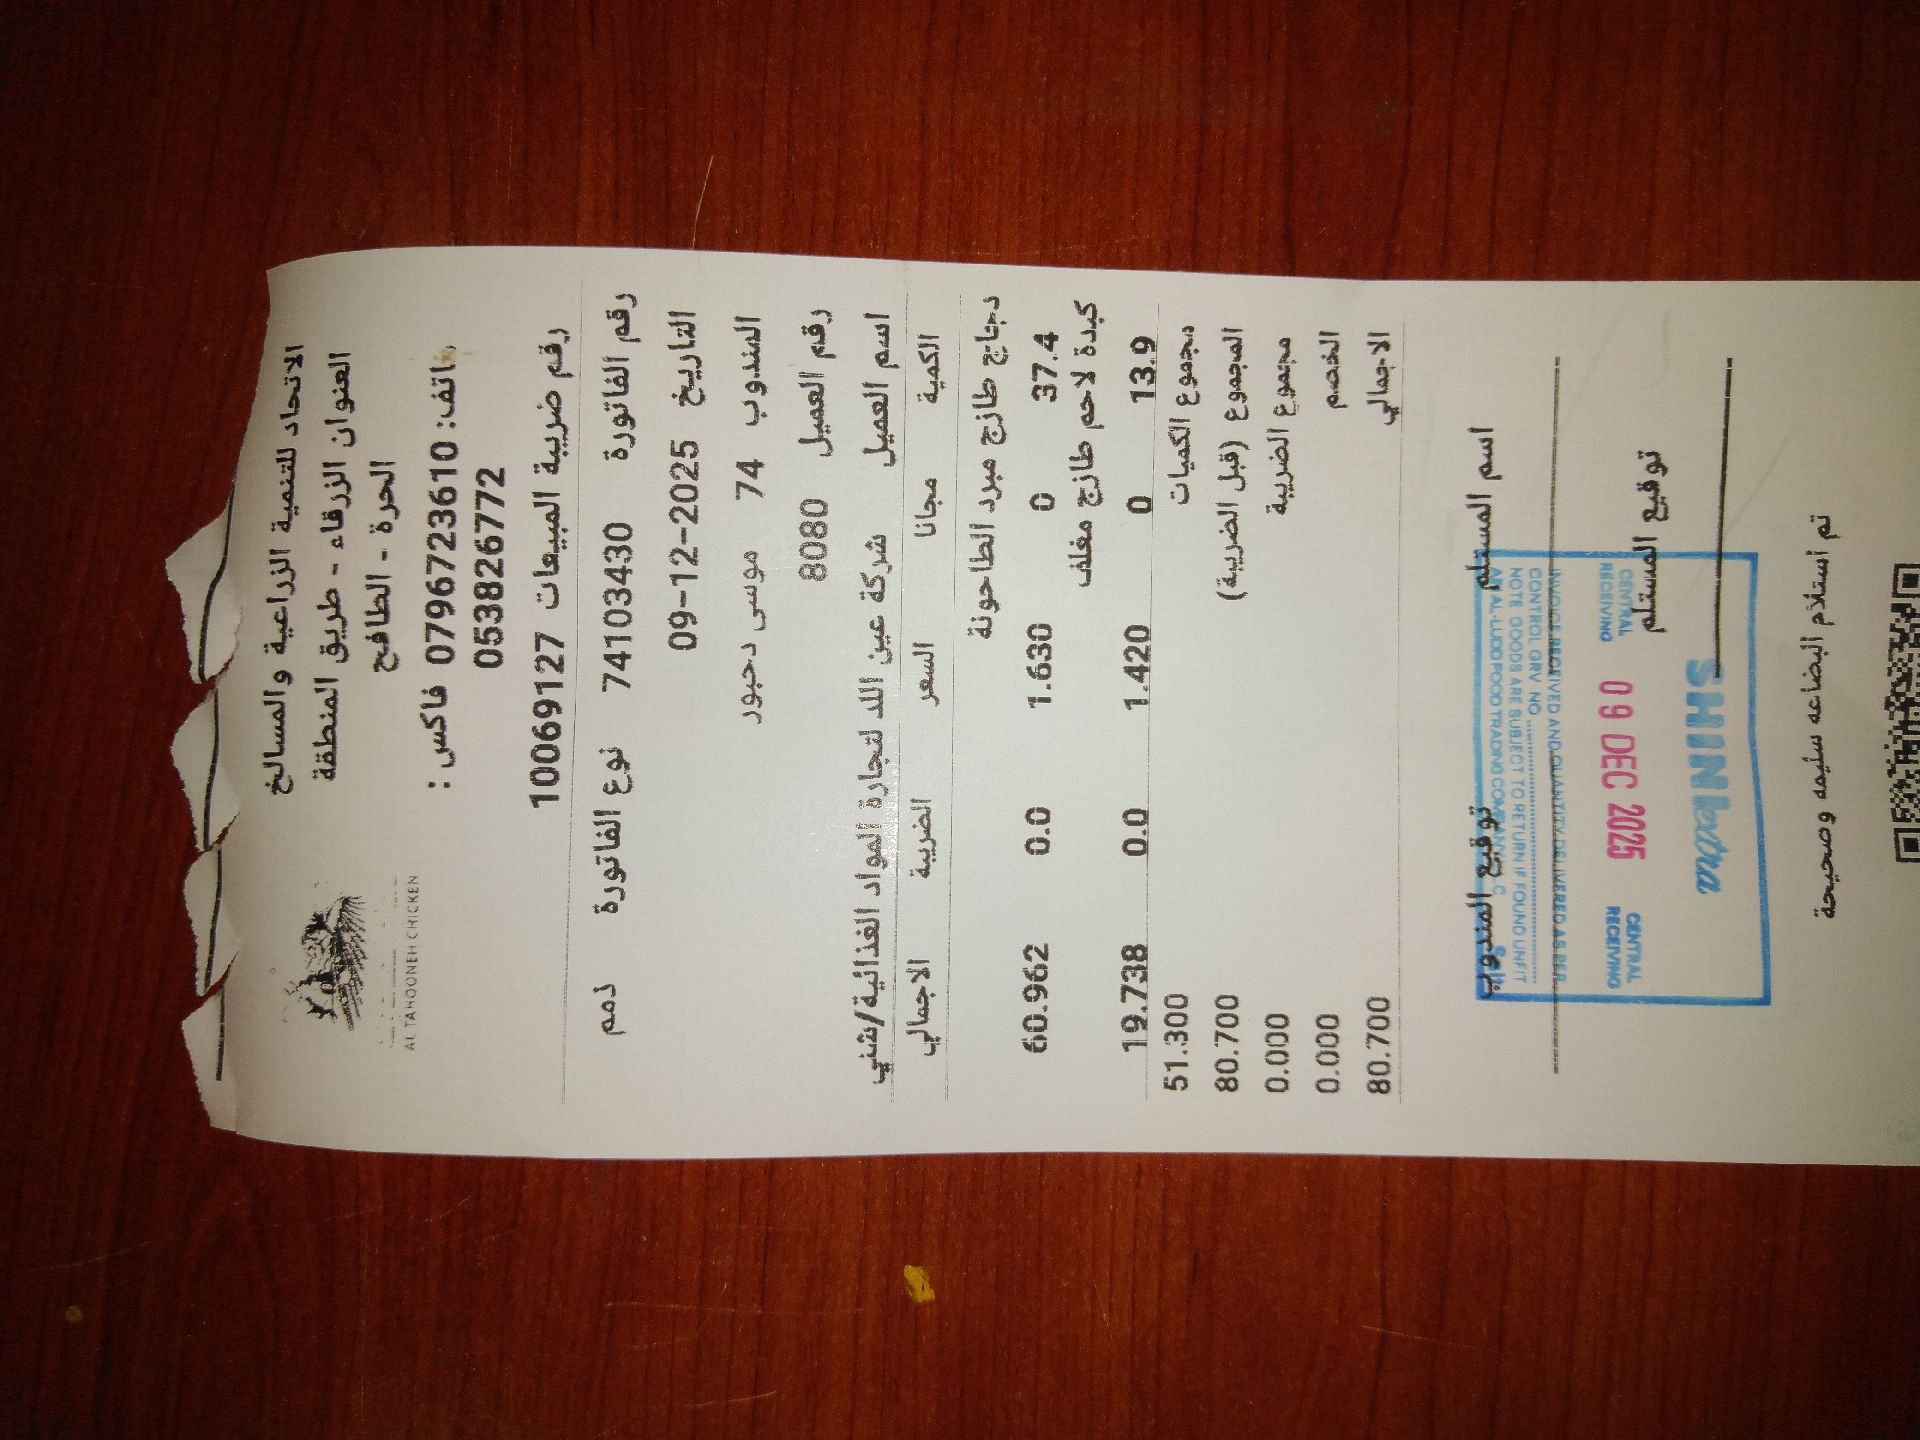 AL TAHOONEH CHICKEN
الاتحاد للتنمية الزراعية والمسالخ
العنوان الزرقاء - طريق المنطقة
الحرة - الطافح
هاتف: 0796723610 فاكس :
053826772
رقم ضريبة المبيعات 10069127
رقم الفاتورة 74103430 نوع الفاتورة ذمم
التاريخ 09-12-2025
المندوب 74 موسى دحبور
رقم العميل 8080
اسم العميل شركة عين اللد لتجارة المواد الغذائية/شني
الكمية مجانا السعر الضريبة الاجمالي
دجاج طازج مبرد الطاحونة
37.4 0 1.630 0.0 60.962
كبدة لاحم طازج مغلف
13.9 0 1.420 0.0 19.738
مجموع الكميات 51.300
المجموع (قبل الضريبة) 80.700
مجموع الضريبة 0.000
الخصم 0.000
الاجمالي 80.700
اسم المستلم توقيع المندوب
AIN AL-LUDD FOOD TRADING COMPANY L.L.C
NOTE GOODS ARE SUBJECT TO RETURN IF FOUND UNFIT
CONTROL GRV NO
INVOICE RECEIVED AND QUANTITY DELIVERED AS PER
CENTRAL RECEIVING 09 DEC 2025 CENTRAL RECEIVING
توقيع المستلم
SHINI extra
تم استلام البضاعه سليمه وصحيحة